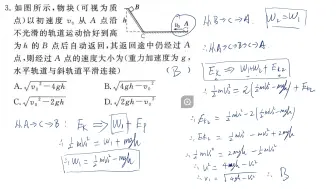 3. 如图所示,物块(可视为质
点)以初速度 v₀ 从 A 点沿
不光滑的轨道运动恰好到高
为 h 的 B 点后自动返回,其返回途中仍经过 A
点,则经过 A 点的速度大小为(重力加速度为 g,
水平轨道与斜轨道平滑连接) ( B )
A. √v₀²-4gh B. √4gh-v₀²
C. √v₀²-2gh D. √2gh-v₀²
从A→C→B: Eₖ ⇒ W₁+Eₚ
½mv₀²=W₁+mgh
∴W₁=½mv₀²-mgh
从B→C→A. W₂=W₁
∴从A→C→B→C→A.
Eₖ ⇒ W₁+W₂+Eₖ₂
∴½mv₀²=2(½mv₀²-mgh)+Eₖ₂
∴Eₖ₂=½mv₀²-2(½mv₀²-mgh)
∴Eₖ₂=½mv₀²-mv₀²+2mgh
∴½mv²=2mgh-½mv₀²
∴v²=4gh-v₀²
∴v=√4gh-v₀² ∴B